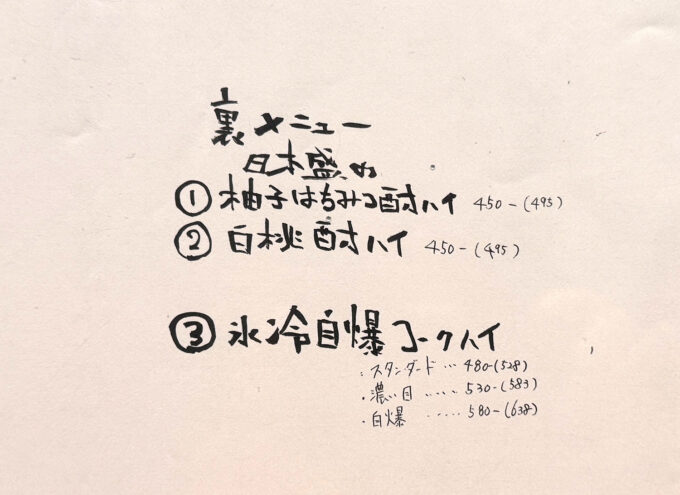 裏メニュー
日本盛の
① 柚子はちみつ酎ハイ 450-(495)
② 白桃酎ハイ 450-(495)
③ 氷冷自爆コークハイ
・スタンダード… 480-(528)
・濃い目 ..... 530-(583)
・自爆 ..... 580-(638)